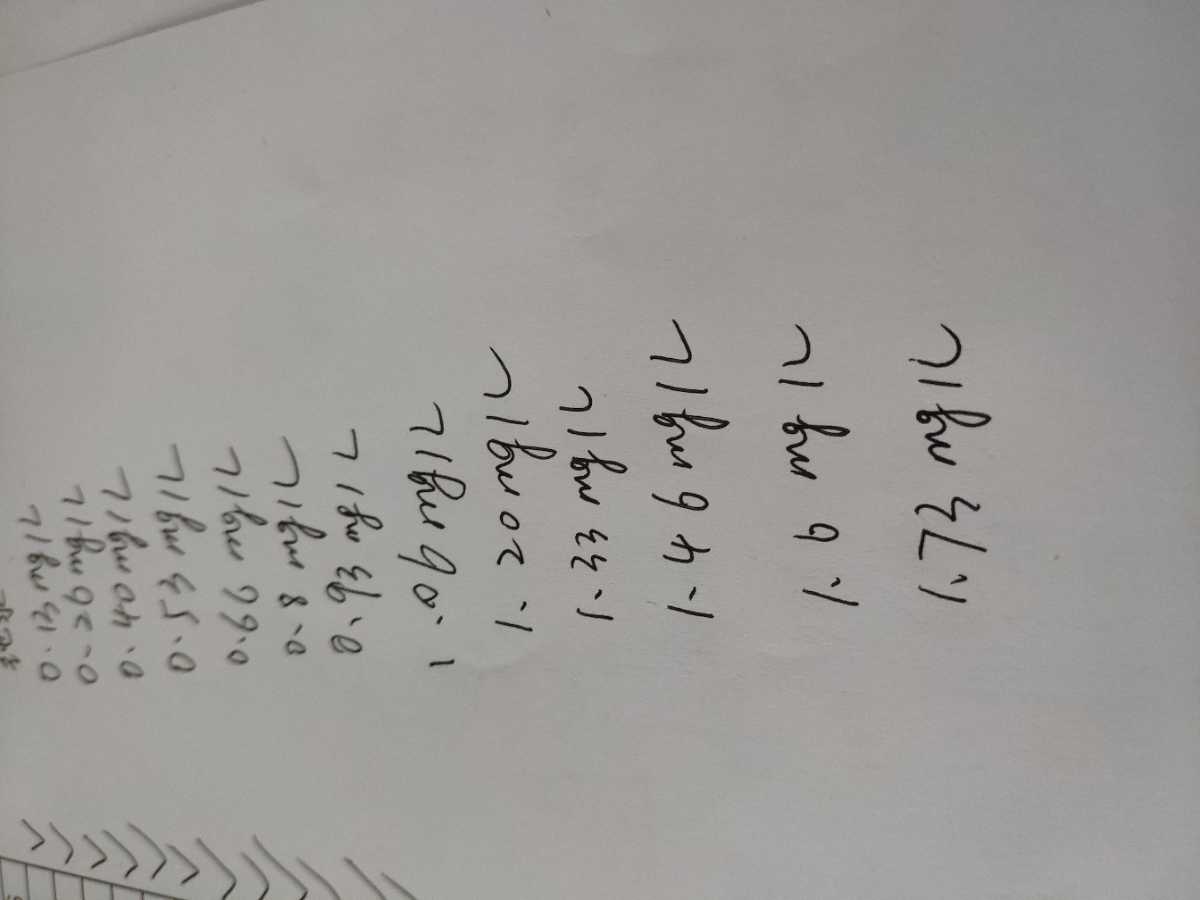 0.13 mg/L
0.26 mg/L
0.40 mg/L
0.53 mg/L
0.66 mg/L
0.8 mg/L
0.93 mg/L
1.06 mg/L
1.20 mg/L
1.33 mg/L
1.46 mg/L
1.6 mg/L
1.73 mg/L